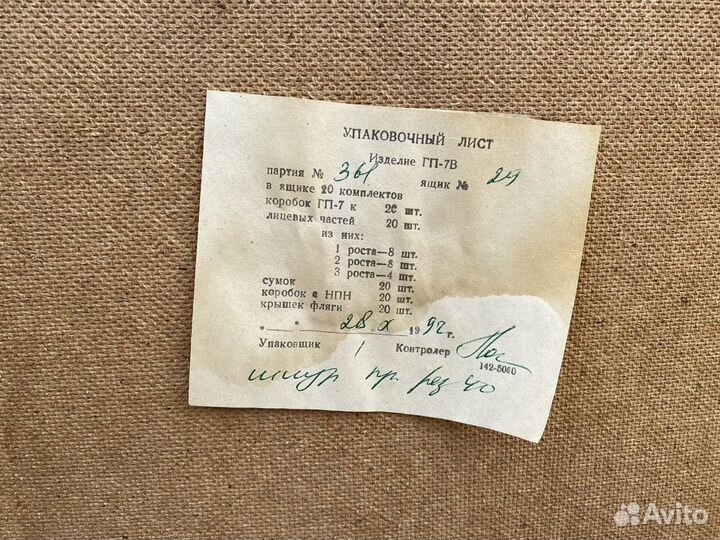 УПАКОВОЧНЫЙ ЛИСТ
Изделие ГП-7В
партия № 361 ящик № 24
в ящике 20 комплектов
коробок ГП-7 к 20 шт.
лицевых частей 20 шт.
из них:
1 роста—8 шт.
2 роста—8 шт.
3 роста—4 шт.
сумок 20 шт.
коробок с НПН 20 шт.
крышек фляги 20 шт.
„ “ 28. X 1992 г.
Упаковщик 1 Контролер
142-5060
шнур. пр. рез 40
Avito